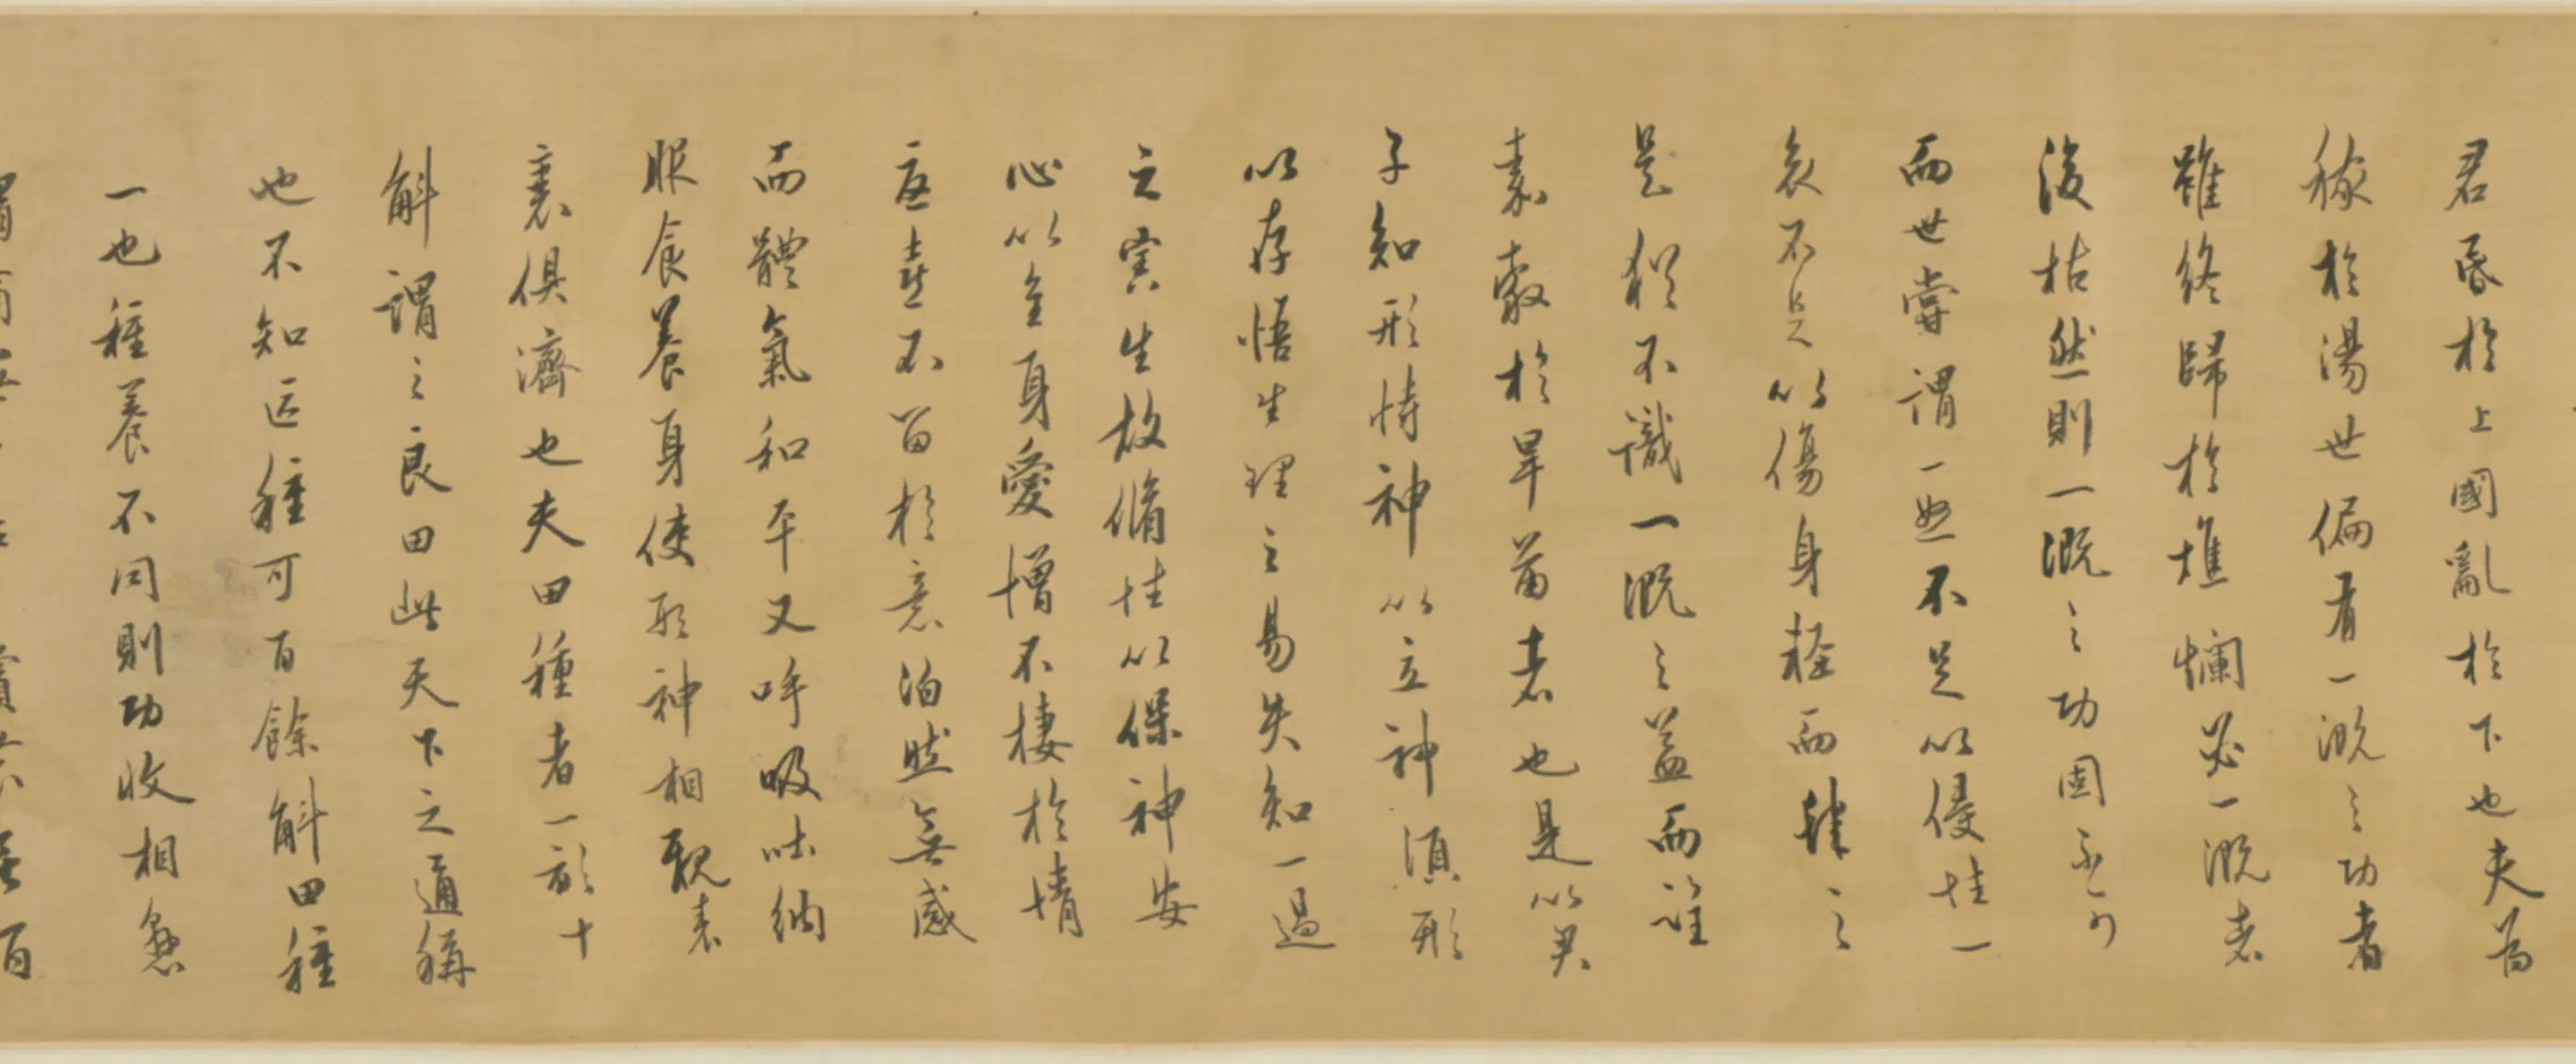 君昏於上國亂於下也夫為
稼於湯世偏有一溉之功者
雖終歸於燋爛必一溉者
後枯然則一溉之功固不可
而世嘗謂一怒不足以侵性一
哀不足以傷身輕而肆之
是猶不識一溉之益而望
嘉穀於旱苗者也是以君
子知形恃神以立神須形
以存悟生理之易失知一過
之害生故脩性以保神安
心以全身愛憎不棲於情
憂喜不留於意泊然無感
而體氣和平又呼吸吐納
服食養身使形神相親表
裏俱濟也夫田種者一畝十
斛謂之良田此天下之通稱
也不知區種可百餘斛田種
一也種養不同則功收相懸